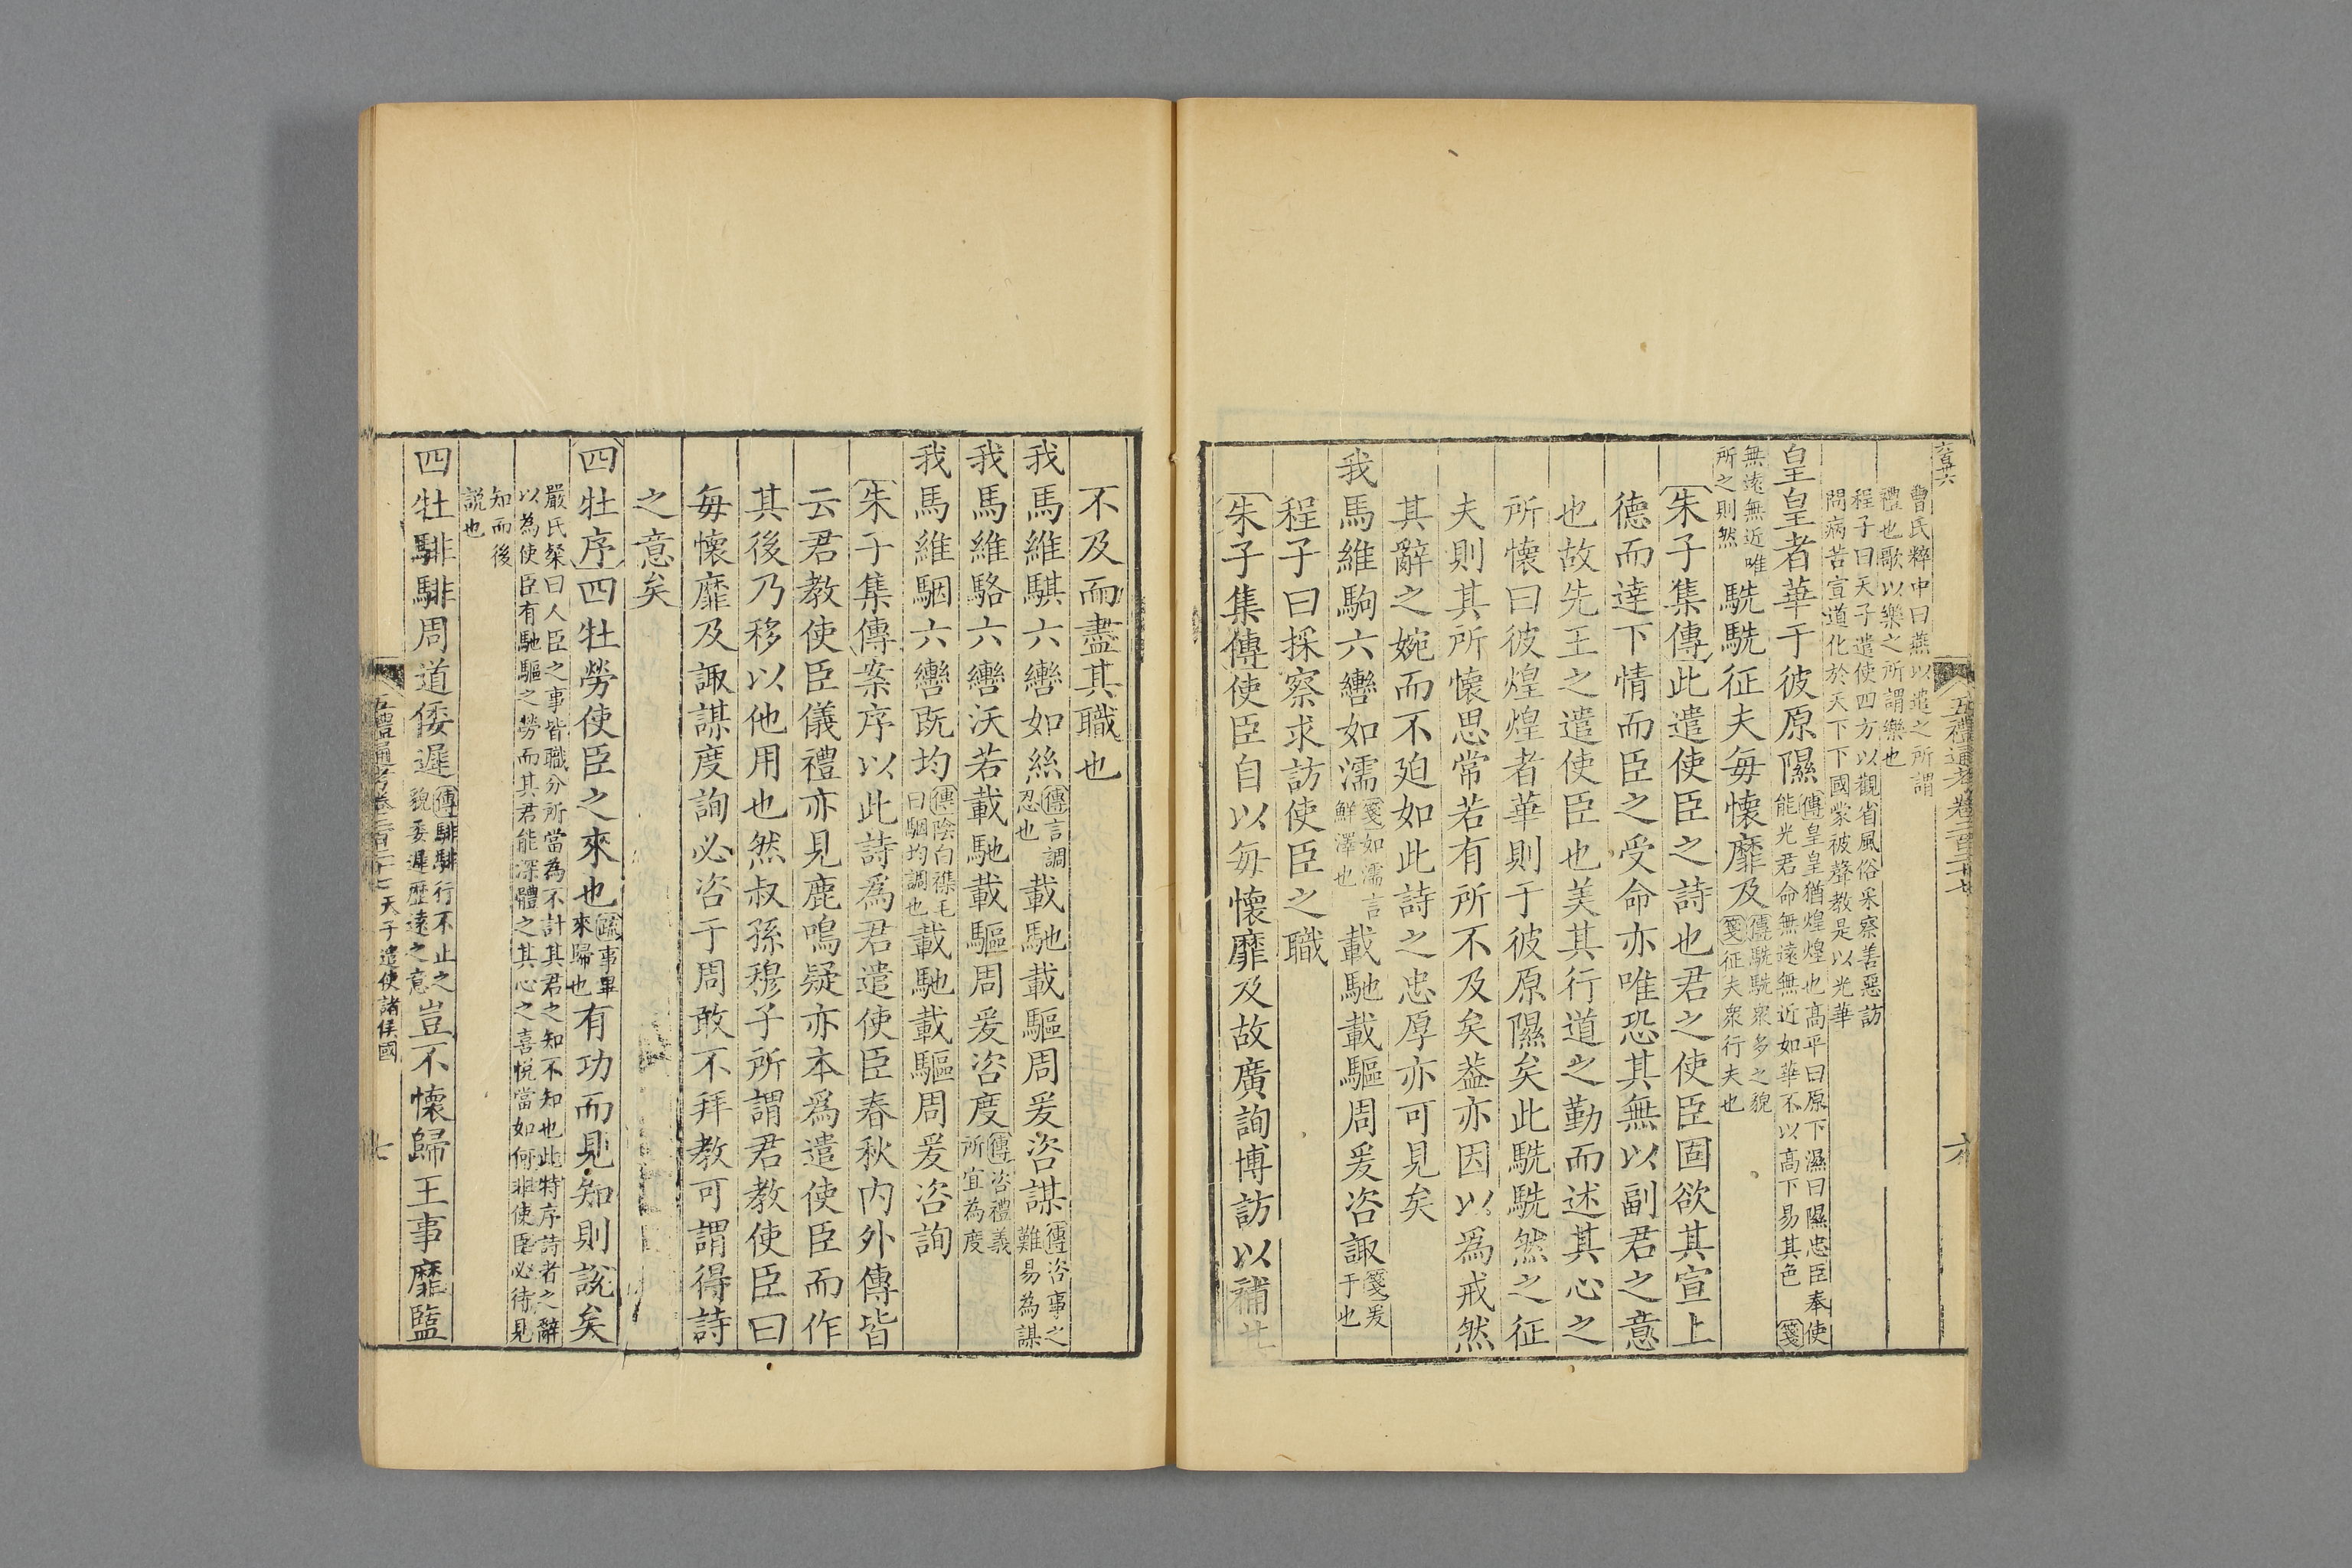 五禮通考卷二百二十七
六
曹氏粹中曰燕以遣之所謂
禮也歌以樂之所謂樂也
程子曰天子遣使四方以觀省風俗采察善惡訪
問病苦宣道化於天下下國蒙被聲教是以光華
皇皇者華于彼原隰
傳皇皇猶煌煌也高平曰原下濕曰隰忠臣奉使
能光君命無遠無近如華不以高下易其色 箋
無遠無近唯
所之則然
駪駪征夫每懷靡及
傳駪駪衆多之貌
箋征夫衆行夫也
朱子集傳此遣使臣之詩也君之使臣固欲其宣上
德而逹下情而臣之受命亦唯恐其無以副君之意
也故先王之遣使臣也美其行道之勤而述其心之
所懷曰彼煌煌者華則于彼原隰矣此駪駪然之征
夫則其所懷思常若有所不及矣葢亦因以爲戒然
其辭之婉而不廹如此詩之忠厚亦可見矣
我馬維駒六轡如濡
箋如濡言
鮮澤也
載馳載驅周爰咨諏
箋爰
于也
程子曰採察求訪使臣之職
朱子集傳使臣自以每懷靡及故廣詢博訪以補其
不及而盡其職也
我馬維騏六轡如絲
傳言調
忍也
載馳載驅周爰咨謀
傳咨事之
難易為謀
我馬維駱六轡沃若載馳載驅周爰咨度
傳咨禮義
所宜為度
我馬維駰六轡既均
傳陰白襍毛
曰駰均調也
載馳載驅周爰咨詢
朱子集傳案序以此詩爲君遣使臣春秋内外傳皆
云君教使臣儀禮亦見鹿鳴疑亦本爲遣使臣而作
其後乃移以他用也然叔孫穆子所謂君教使臣曰
每懷靡及諏謀度詢必咨于周敢不拜教可謂得詩
之意矣
四牡序四牡勞使臣之來也
疏事畢
來歸也
有功而見知則說矣
嚴氏粲曰人臣之事皆職分所當為不計其君之知不知也此特序詩者之辭
以為使臣有馳驅之勞而其君能深體之其心之喜悅當如何非使臣必待見
知而後
説也
四牡騑騑周道倭遲
傳騑騑行不止之
貌委遲歷遠之意
豈不懷歸王事靡盬
五禮通考卷二百二十七天子遣使諸侯國
七